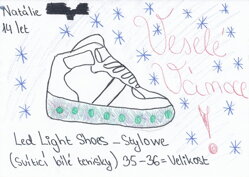 Natálie
14 let
Veselé
Vánoce
!
Led Light Shoes - Stylowe
(svítící bílé tenisky) 35-36 = Velikost